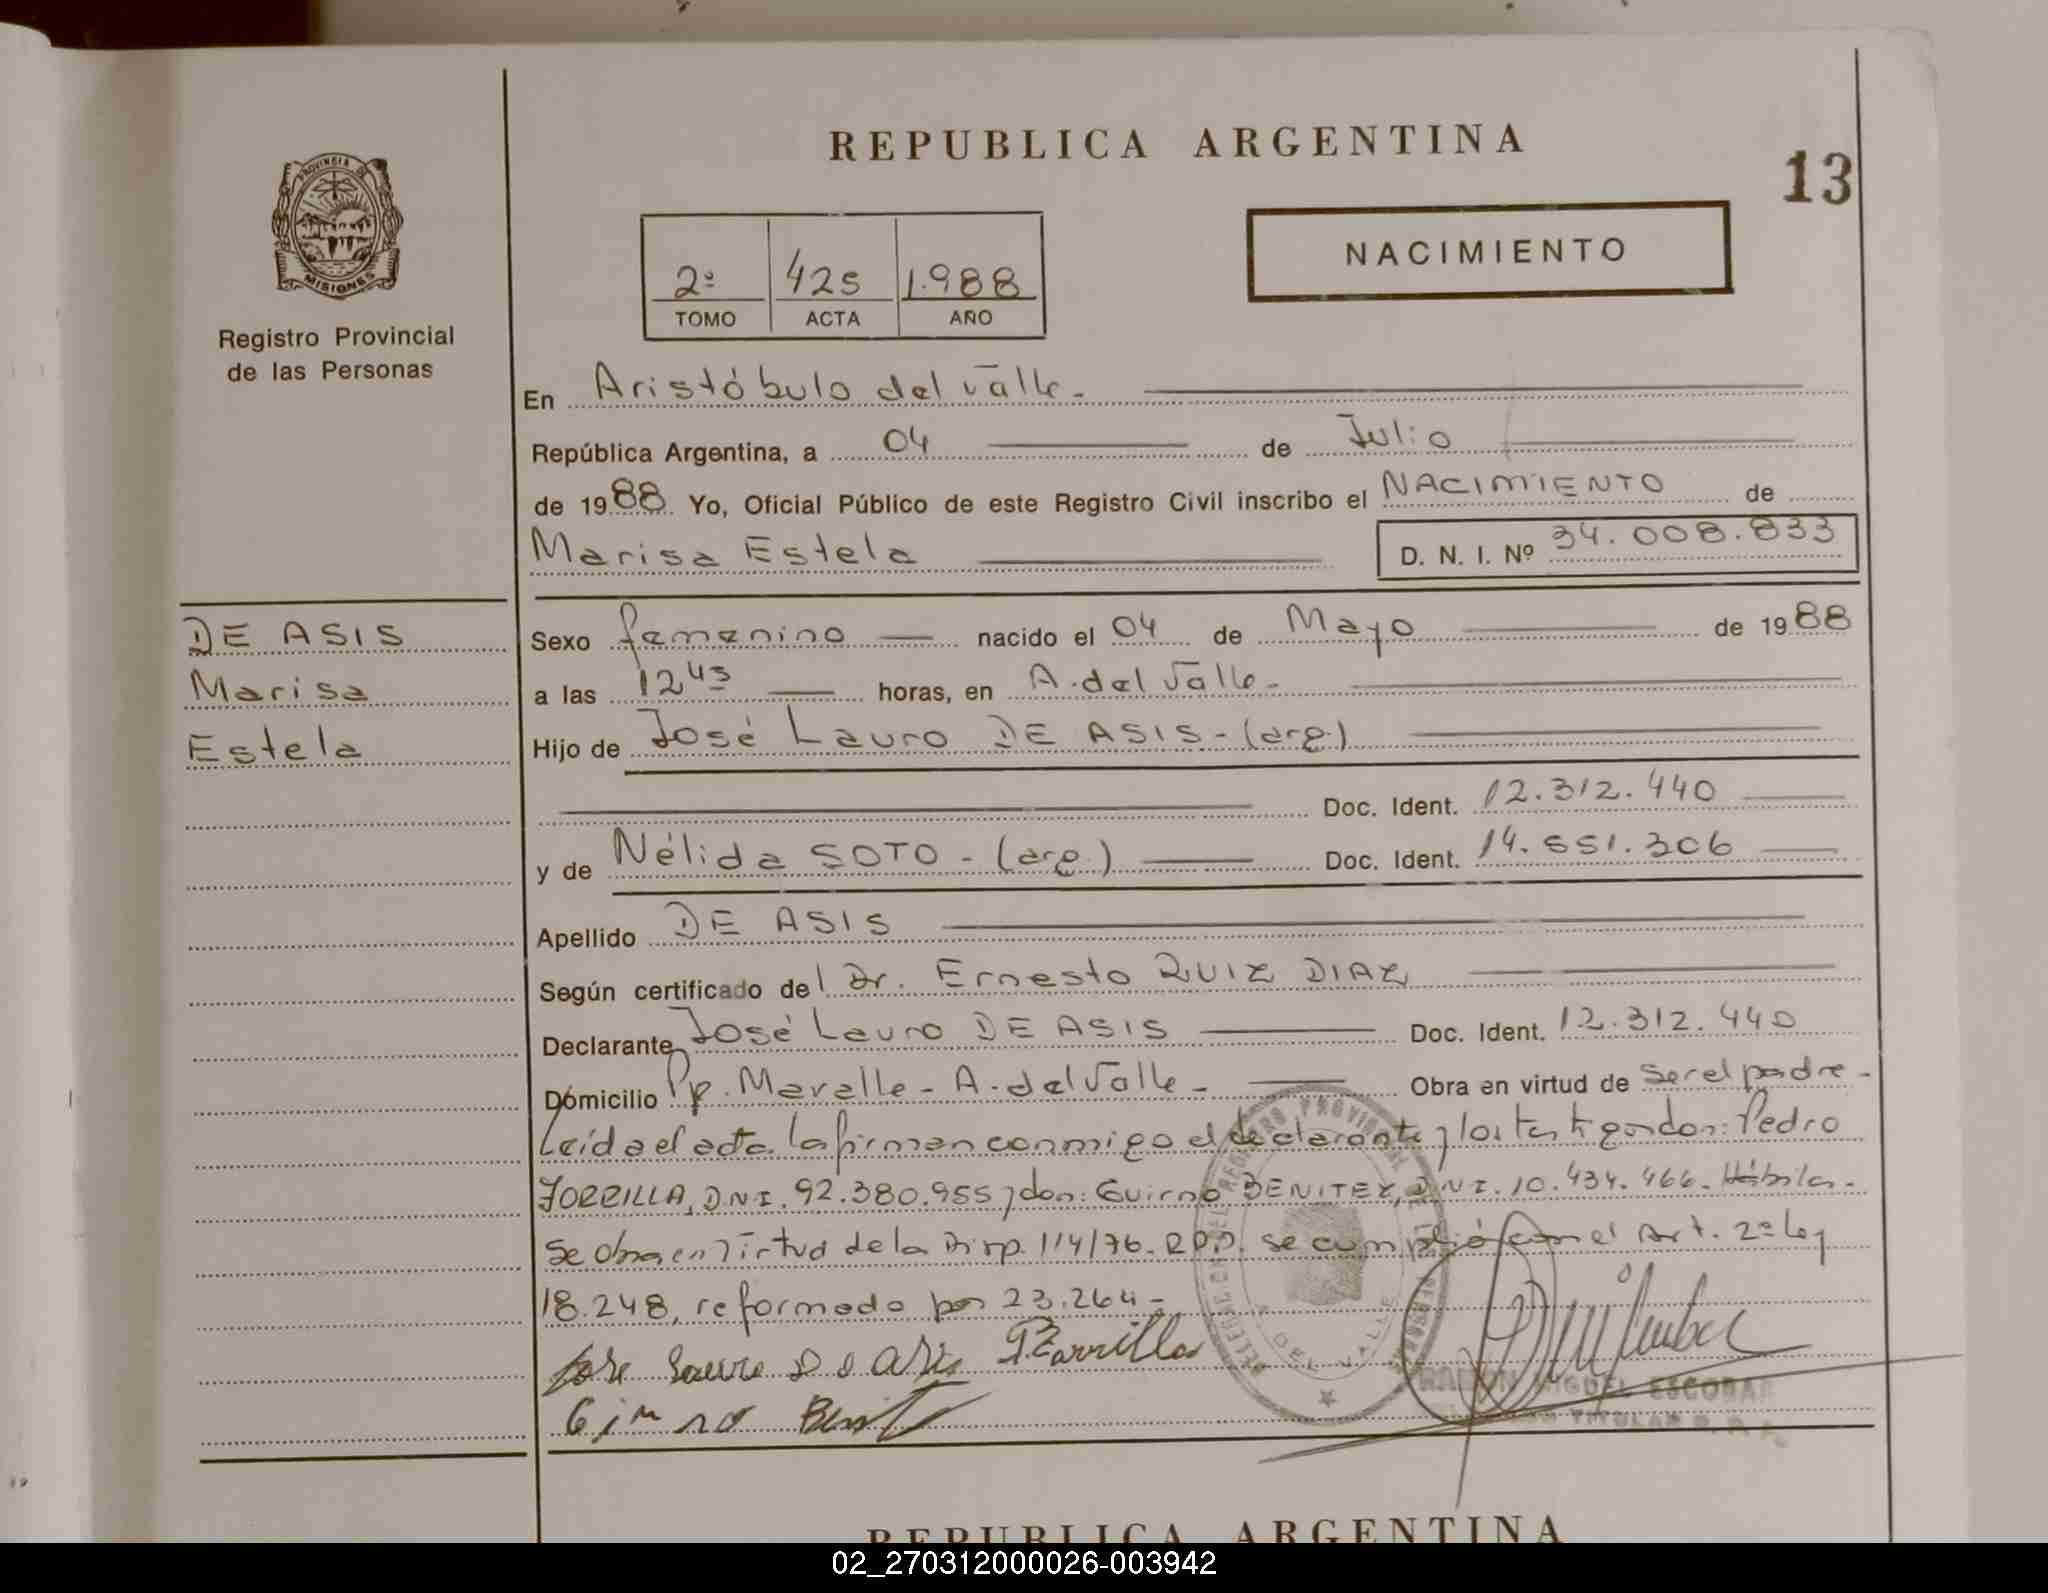 REPUBLICA ARGENTINA
13
PROVINCIA DE
MISIONES
Registro Provincial
de las Personas
2º 425 1.988
TOMO ACTA AÑO
NACIMIENTO
En Aristóbulo del Valle.
República Argentina, a 04 de Julio
de 1988 Yo, Oficial Público de este Registro Civil inscribo el NACIMIENTO de
Marisa Estela D. N. I. Nº 34.008.833
DE ASIS
Marisa
Estela
Sexo femenino nacido el 04 de Mayo de 1988
a las 12 45 horas, en A. del Valle-
Hijo de José Lauro DE ASIS - (arg.)
Doc. Ident. 12.312.440
y de Nélida SOTO - (arg.) Doc. Ident. 14.551.306
Apellido DE ASIS
Según certificado del Dr. Ernesto RUIZ DIAZ
Declarante José Lauro DE ASIS Doc. Ident. 12.312.440
Domicilio Pp. - A. del Valle - Obra en virtud de ser el padre -
Leída el acta la firman conmigo el declarante y los testigos don: Pedro
ZORRILLA, D.N.I. 92.380.955 y don: BENITEZ, D.N.I. 10.434.466. Hábiles.
Se obra en virtud de la Disp. 114/76. R.P.P. se cumplió con el Art. 2º Ley
18.248, reformado por 23.264 -
Jose Lauro De Asis P. Zorrilla
DELEGACION DEL REGISTRO PROVINCIAL DE LAS PERSONAS
A. DEL VALLE
RAMON MIGUEL ESCOBAR
TITULAR R. P. P.
REPUBLICA ARGENTINA
02_270312000026-003942